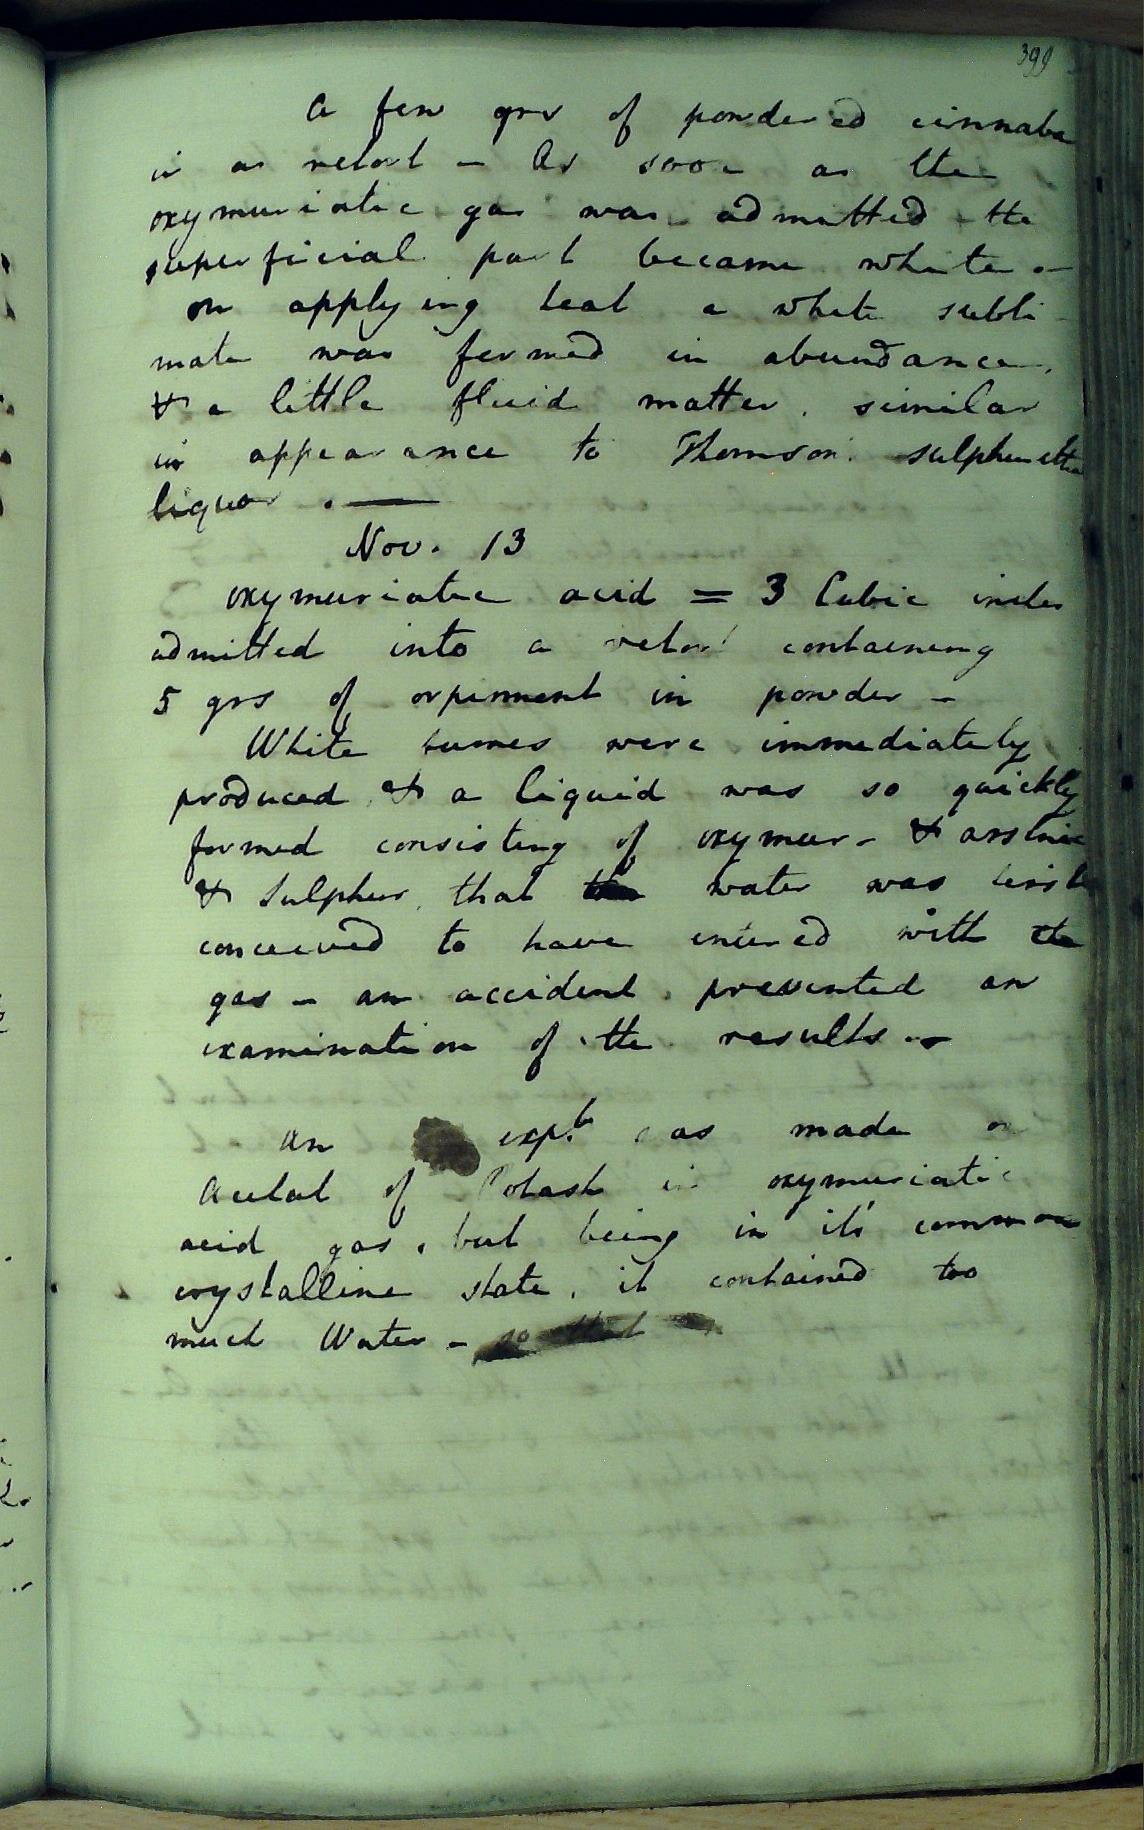 399
A few grs of powdered cinnaba
in a retort – As soon as the
oxymuriatic gas was admitted the
superficial part became white –
on applying heat a white subli
mate was formed in abundance,
& a little fluid matter, similar
in appearance to Thomson
liquor. —
Nov. 13
oxymuriatic acid = 3 Cubic inches
admitted into a retort containing
5 grs of orpiment in powder –
White fumes were immediately
produced & a liquid was so quickly
formed consisting of oxymur- & arsenic
& Sulphur, that the water was first
conceived to have entered with the
gas – an accident prevented an
examination of the results –
An expt. was made on
Acetat of Potash in oxymuriatic
acid gas, but being in it's common
crystalline state, it contained too
much Water – so that